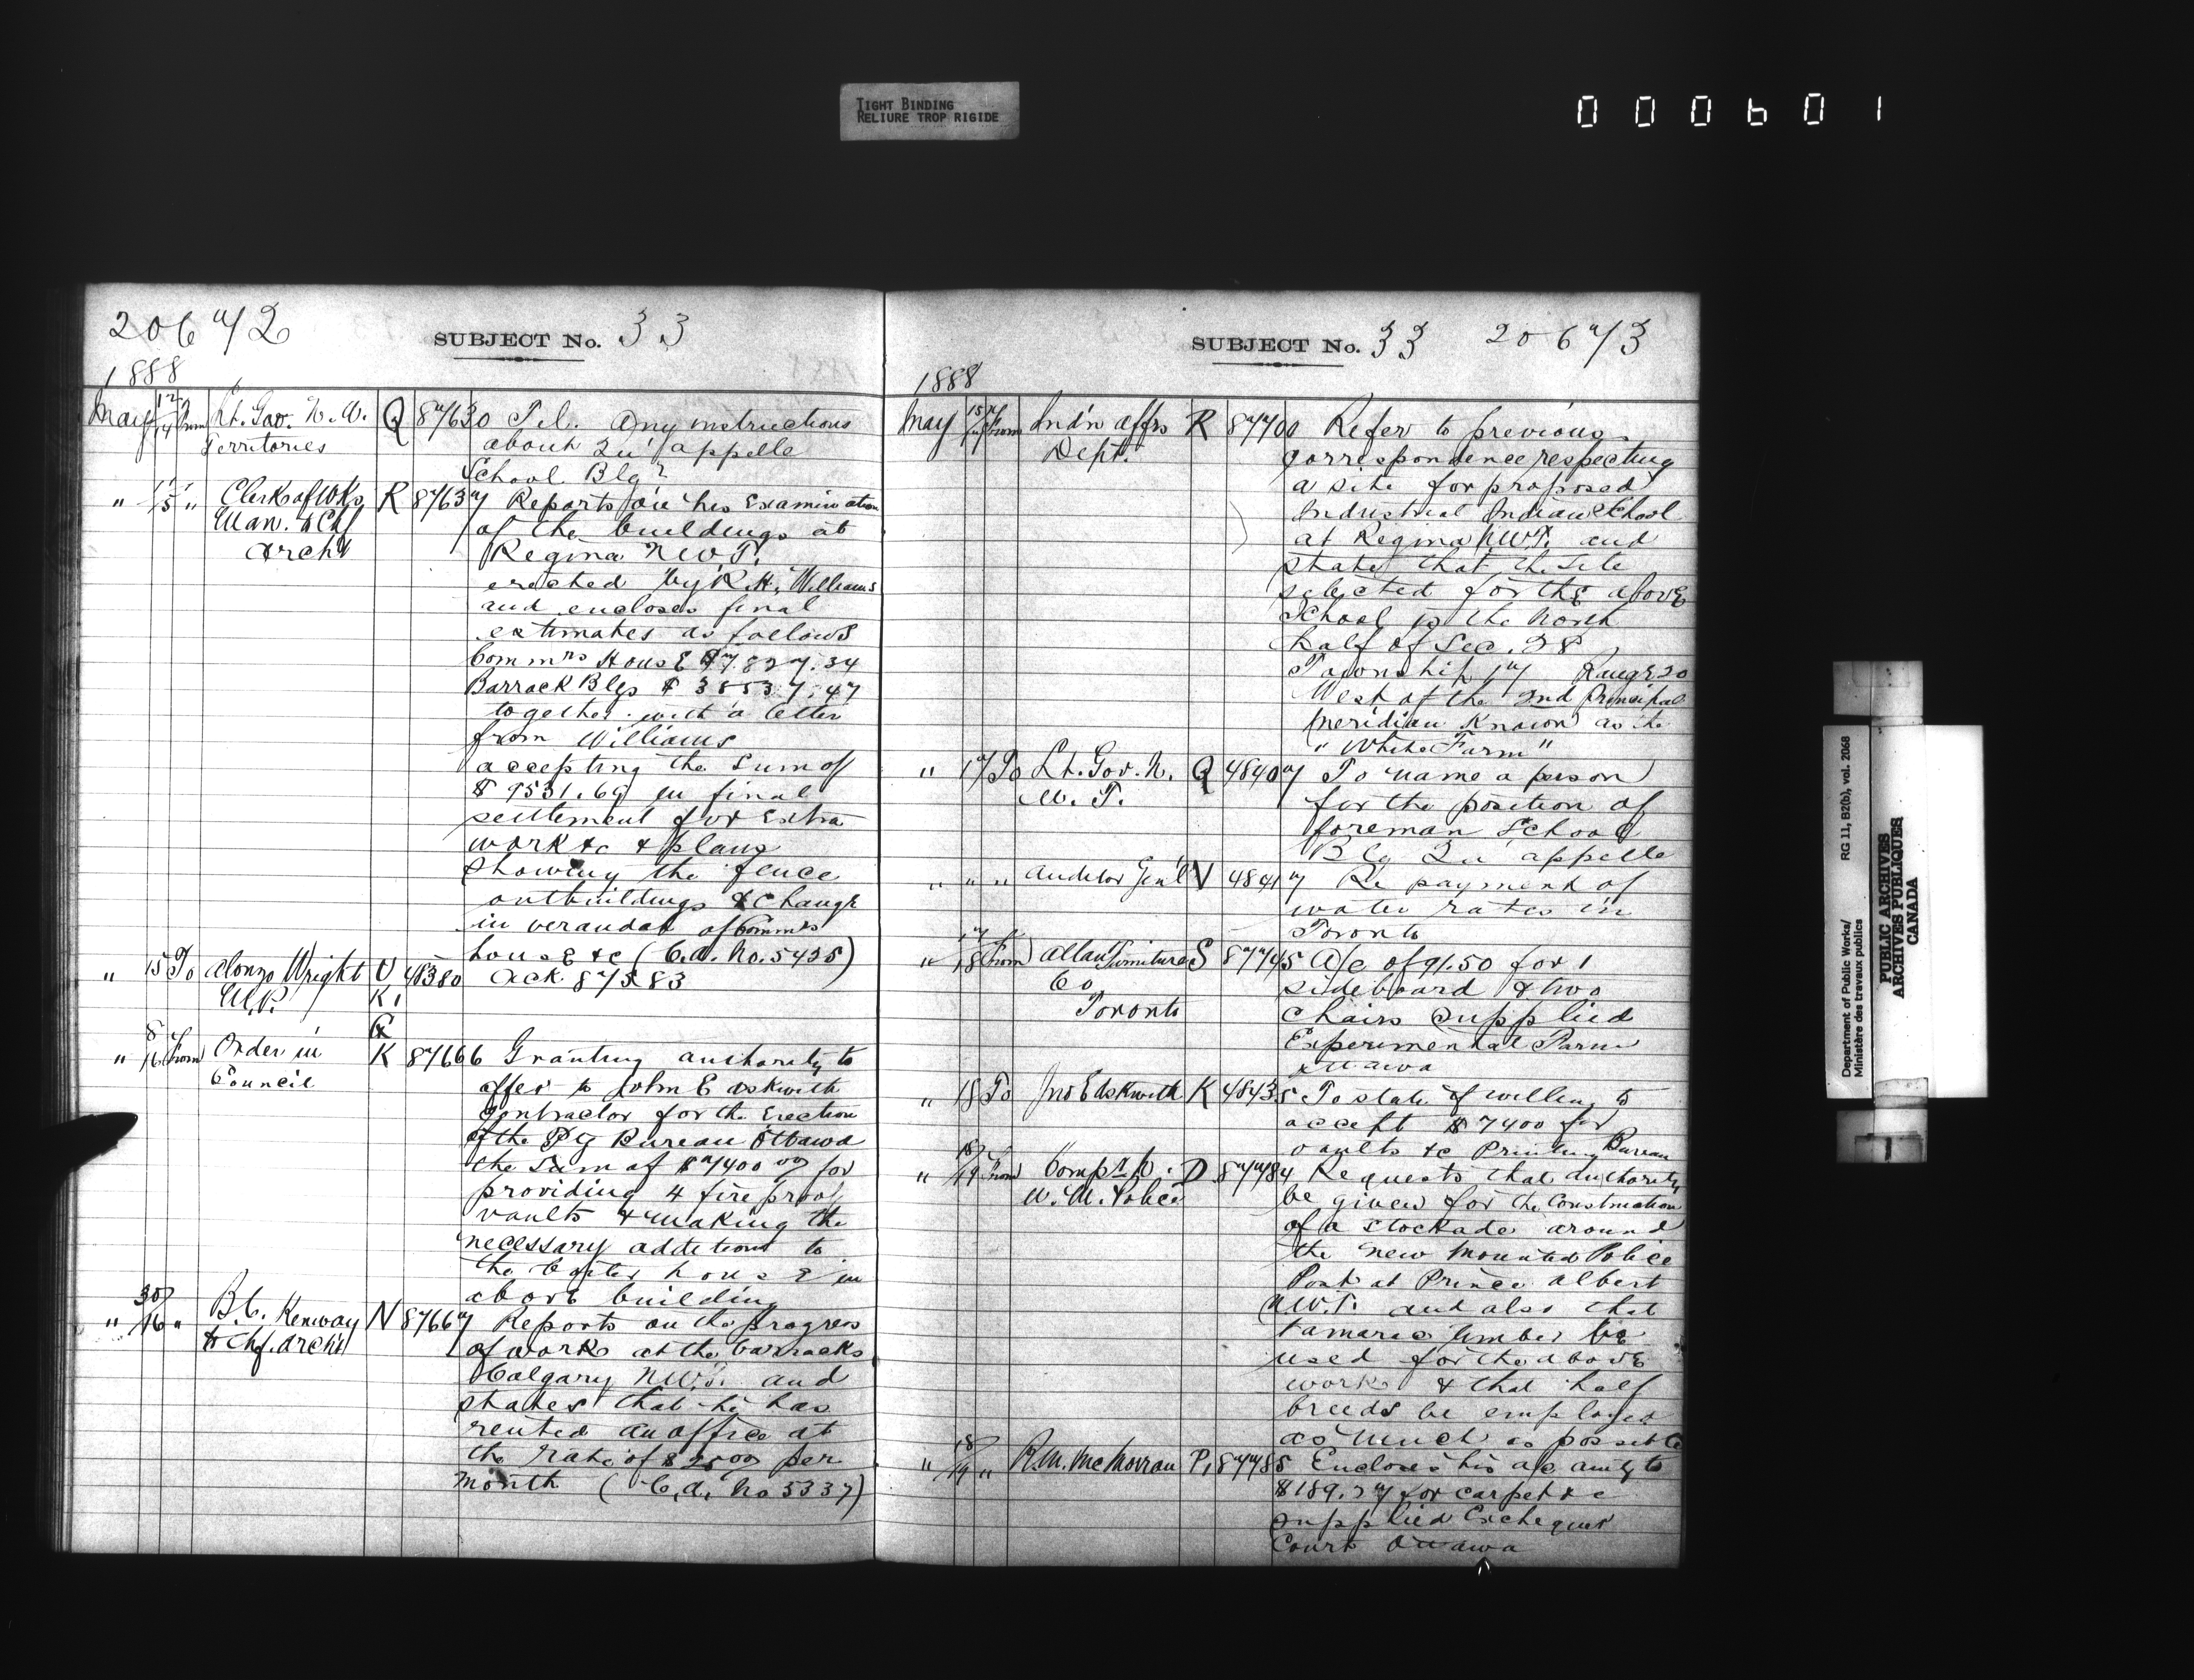 TIGHT BINDING
RELIURE TROP RIGIDE
000601
20672
SUBJECT No. 33
1888
May 12/14 From Lt. Gov. N. W. Q 87630 Tel. Any instructions
Territories about Qu'appelle
School Blg?
" 15 " Clerk of Wks R 87637 Reports on his Examination
Man. & Chf of the buildings at
Archt Regina N.W.T.
erected by R. H. Williams
and encloses final
estimates as follows
Commrs House $7.827.34
Barrack Blgs $ 38537.47
together with a letter
from Williams
accepting the Sum of
$ 9531.69 in final
settlement for Extra
work &c & plans
showing the fence
outbuildings & Change
in verandah of Commrs
house &c (C.A. No. 5425)
" 15 To Alonzo Wright U 48380 Ack 87583
M.P. K1
Q
" 8/16 From Order in K 87666 Granting authority to
Council offer to John E Askwith
Contractor for the Erection
of the Pg Bureau Ottawa
the Sum of $7400 00 for
providing 4 fire proof
vaults & making the
necessary additions to
the boiler house in
above building
" 30/16 " B. C. Kenway N 87667 Reports on the progress
& Chf. Archt of works at the barracks
Calgary N.W.T. and
states that he has
rented an office at
the rate of $25 00 per
month (C.A. No 5337)
SUBJECT No. 33 20673
1888
May 15/17 From Ind'n Affrs R 87700 Refer to previous
Dept. correspondence respecting
a site for proposed
Industrial Indian School
at Regina N.W.T. and
state that the site
selected for the above
School is the North
half of Sec. 28
Township 17 Range 20
West of the 2nd Principal
Meridian Known as the
" White Farm "
" 17 To Lt. Gov. N. Q 48407 To name a person
W. T. for the position of
foreman School
Blg Qu'appelle
" " " Auditor Gen'l V 48417 Re payment of
water rates in
Toronto
" 17/18 From Allan Furniture S 87745 A/c of 91.50 for 1
Co sideboard & two
Toronto chairs supplied
Experimental Farm
Ottawa
" 18 To Jno E Askwith K 48435 To state if willing to
accept $ 7400 for
vaults &c Printing Bureau
" 18/19 From Compr N. D 87784 Requests that Authority
W. M. Police be given for the Construction
of a stockade around
the new Mounted Police
Post at Prince Albert
N.W.T. and also that
tamarac timber be
used for the above
work & that half
breeds be employed
as much as possible
" 18/19 " R.M. McMorran P1 87785 Encloses his a/c amtg to
$189.27 for carpet &c
supplied Exchequer
Court Ottawa
Department of Public Works/
Ministère des travaux publics
RG 11, B2(b), vol. 2068
PUBLIC ARCHIVES
ARCHIVES PUBLIQUES
CANADA